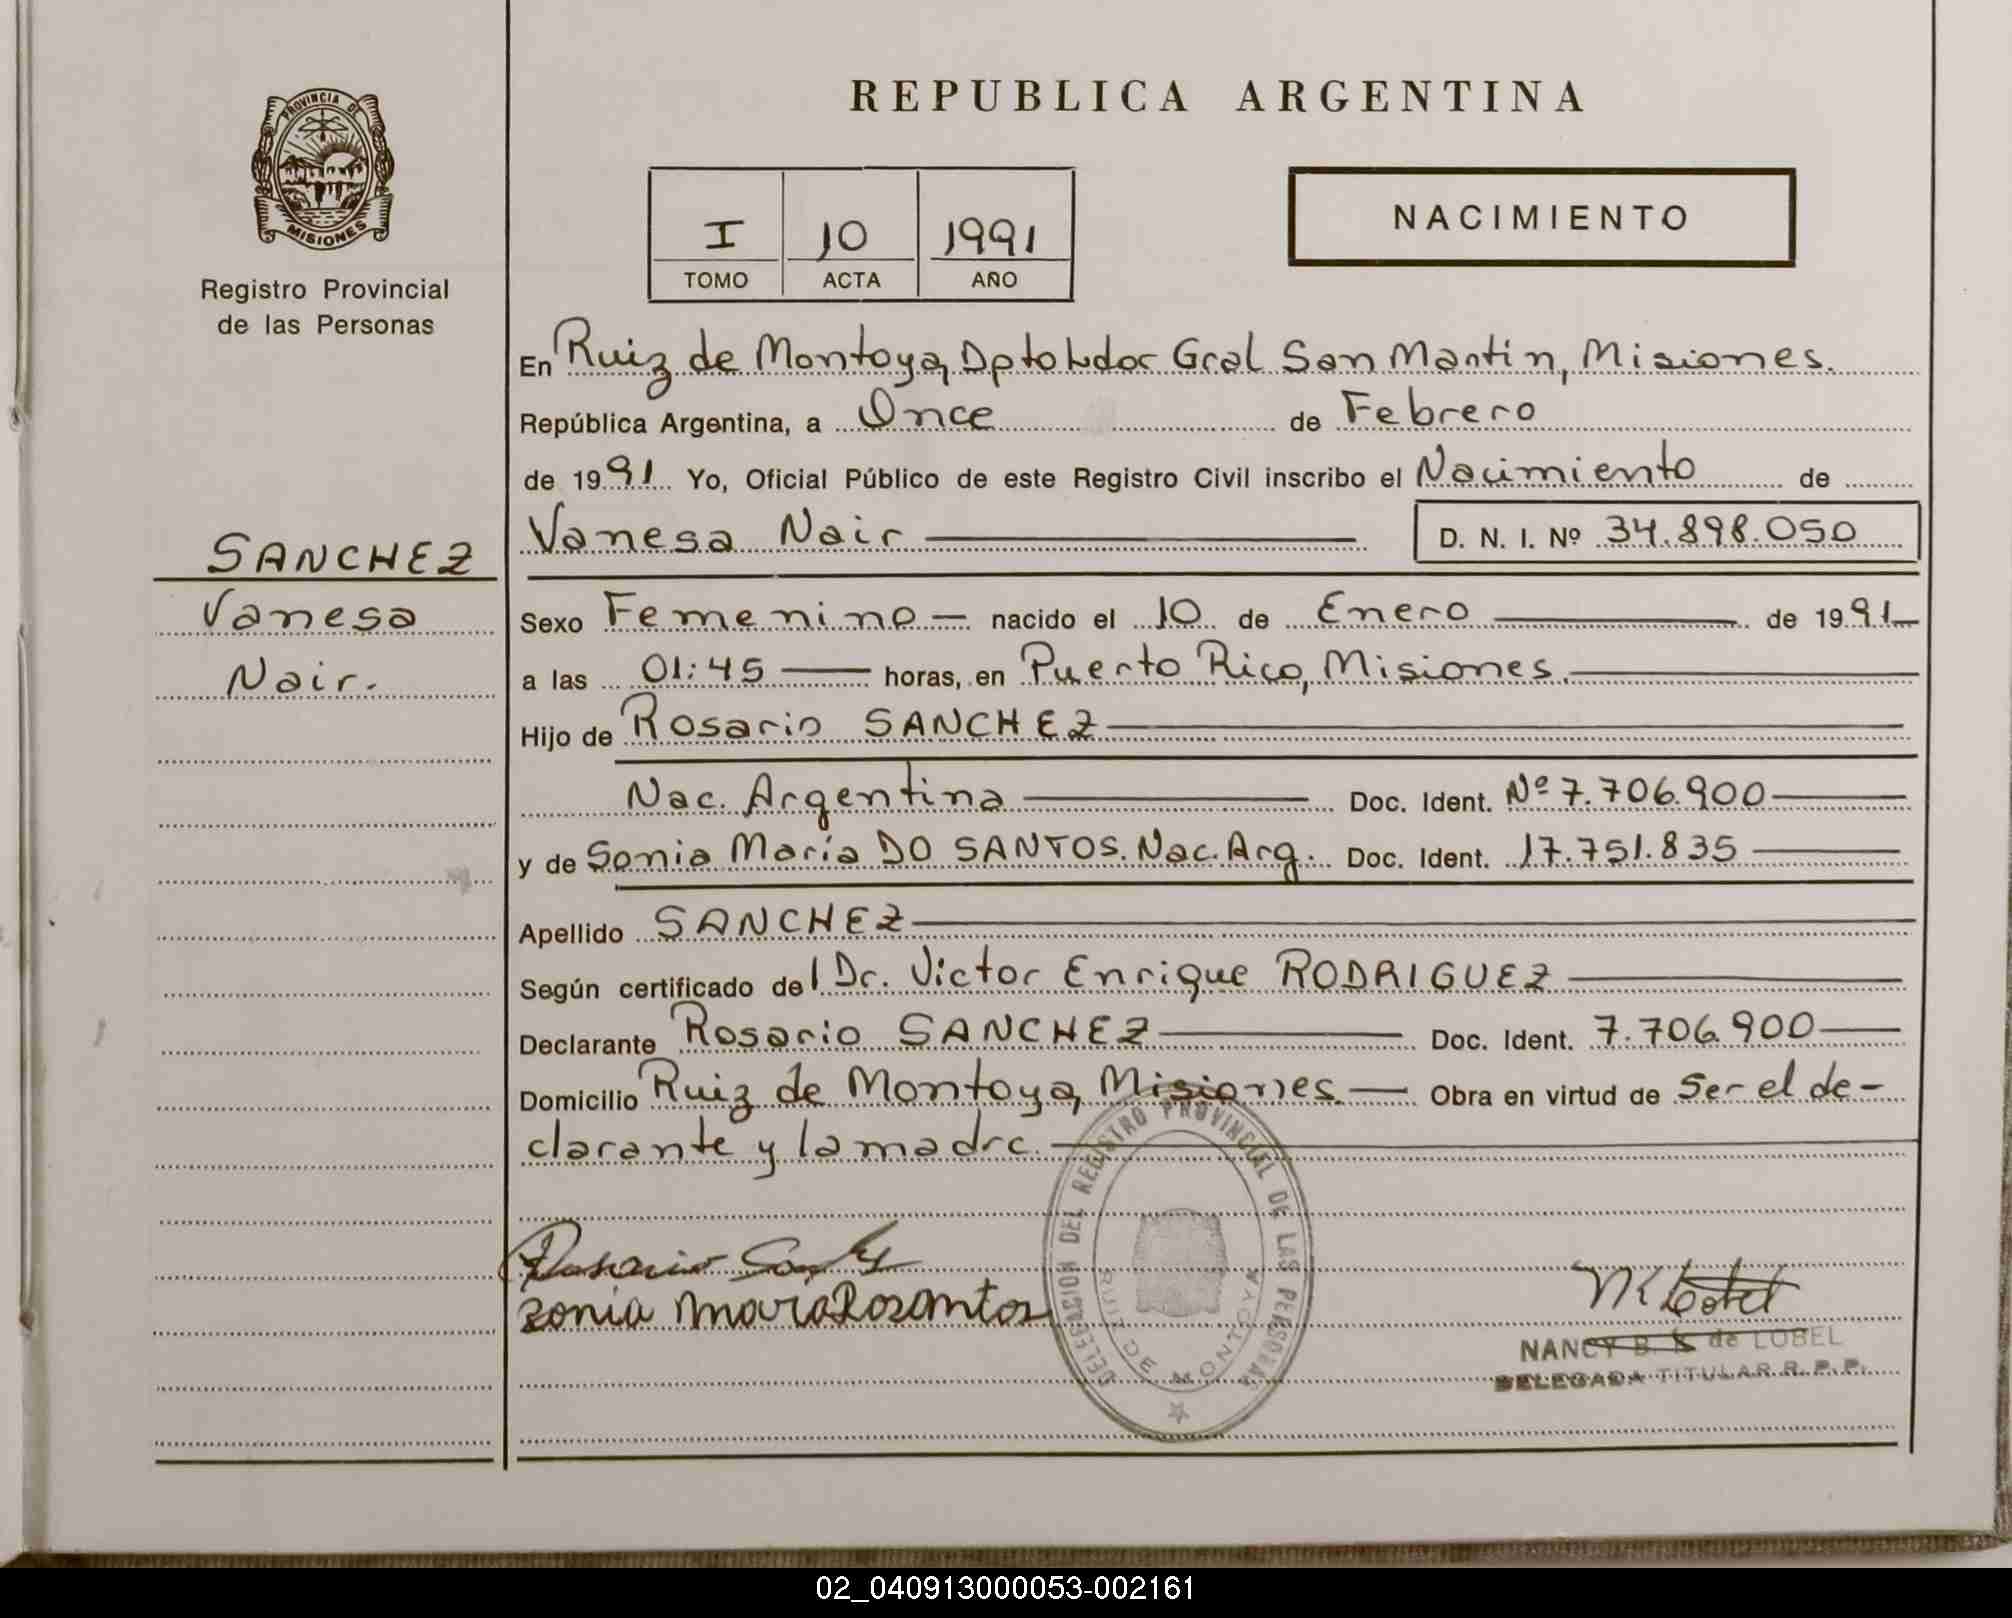 PROVINCIA DE
MISIONES
Registro Provincial
de las Personas
SANCHEZ
Vanesa
Nair.
REPUBLICA ARGENTINA
I 10 1991
TOMO ACTA AÑO
NACIMIENTO
En Ruiz de Montoya, Dpto Ldor Gral San Martin, Misiones.
República Argentina, a Once de Febrero
de 1991 Yo, Oficial Público de este Registro Civil inscribo el Nacimiento de
Vanesa Nair D. N. I. Nº 34.898.050
Sexo Femenino nacido el 10 de Enero de 1991
a las 01:45 horas, en Puerto Rico, Misiones.
Hijo de Rosario SANCHEZ
Nac. Argentina Doc. Ident. Nº 7.706.900
y de Sonia María DO SANTOS. Nac. Arg. Doc. Ident. 17.751.835
Apellido SANCHEZ
Según certificado del Dr. Victor Enrique RODRIGUEZ
Declarante Rosario SANCHEZ Doc. Ident. 7.706.900
Domicilio Ruiz de Montoya, Misiones. Obra en virtud de Ser el de-
clarante y la madre.
DELEGACION DEL REGISTRO PROVINCIAL DE LAS PERSONAS
RUIZ DE MONTOYA
Rosario
zonia maria Dosantos
NANCY B. K de LOBEL
DELEGADA TITULAR R. P. P.
02_040913000053-002161